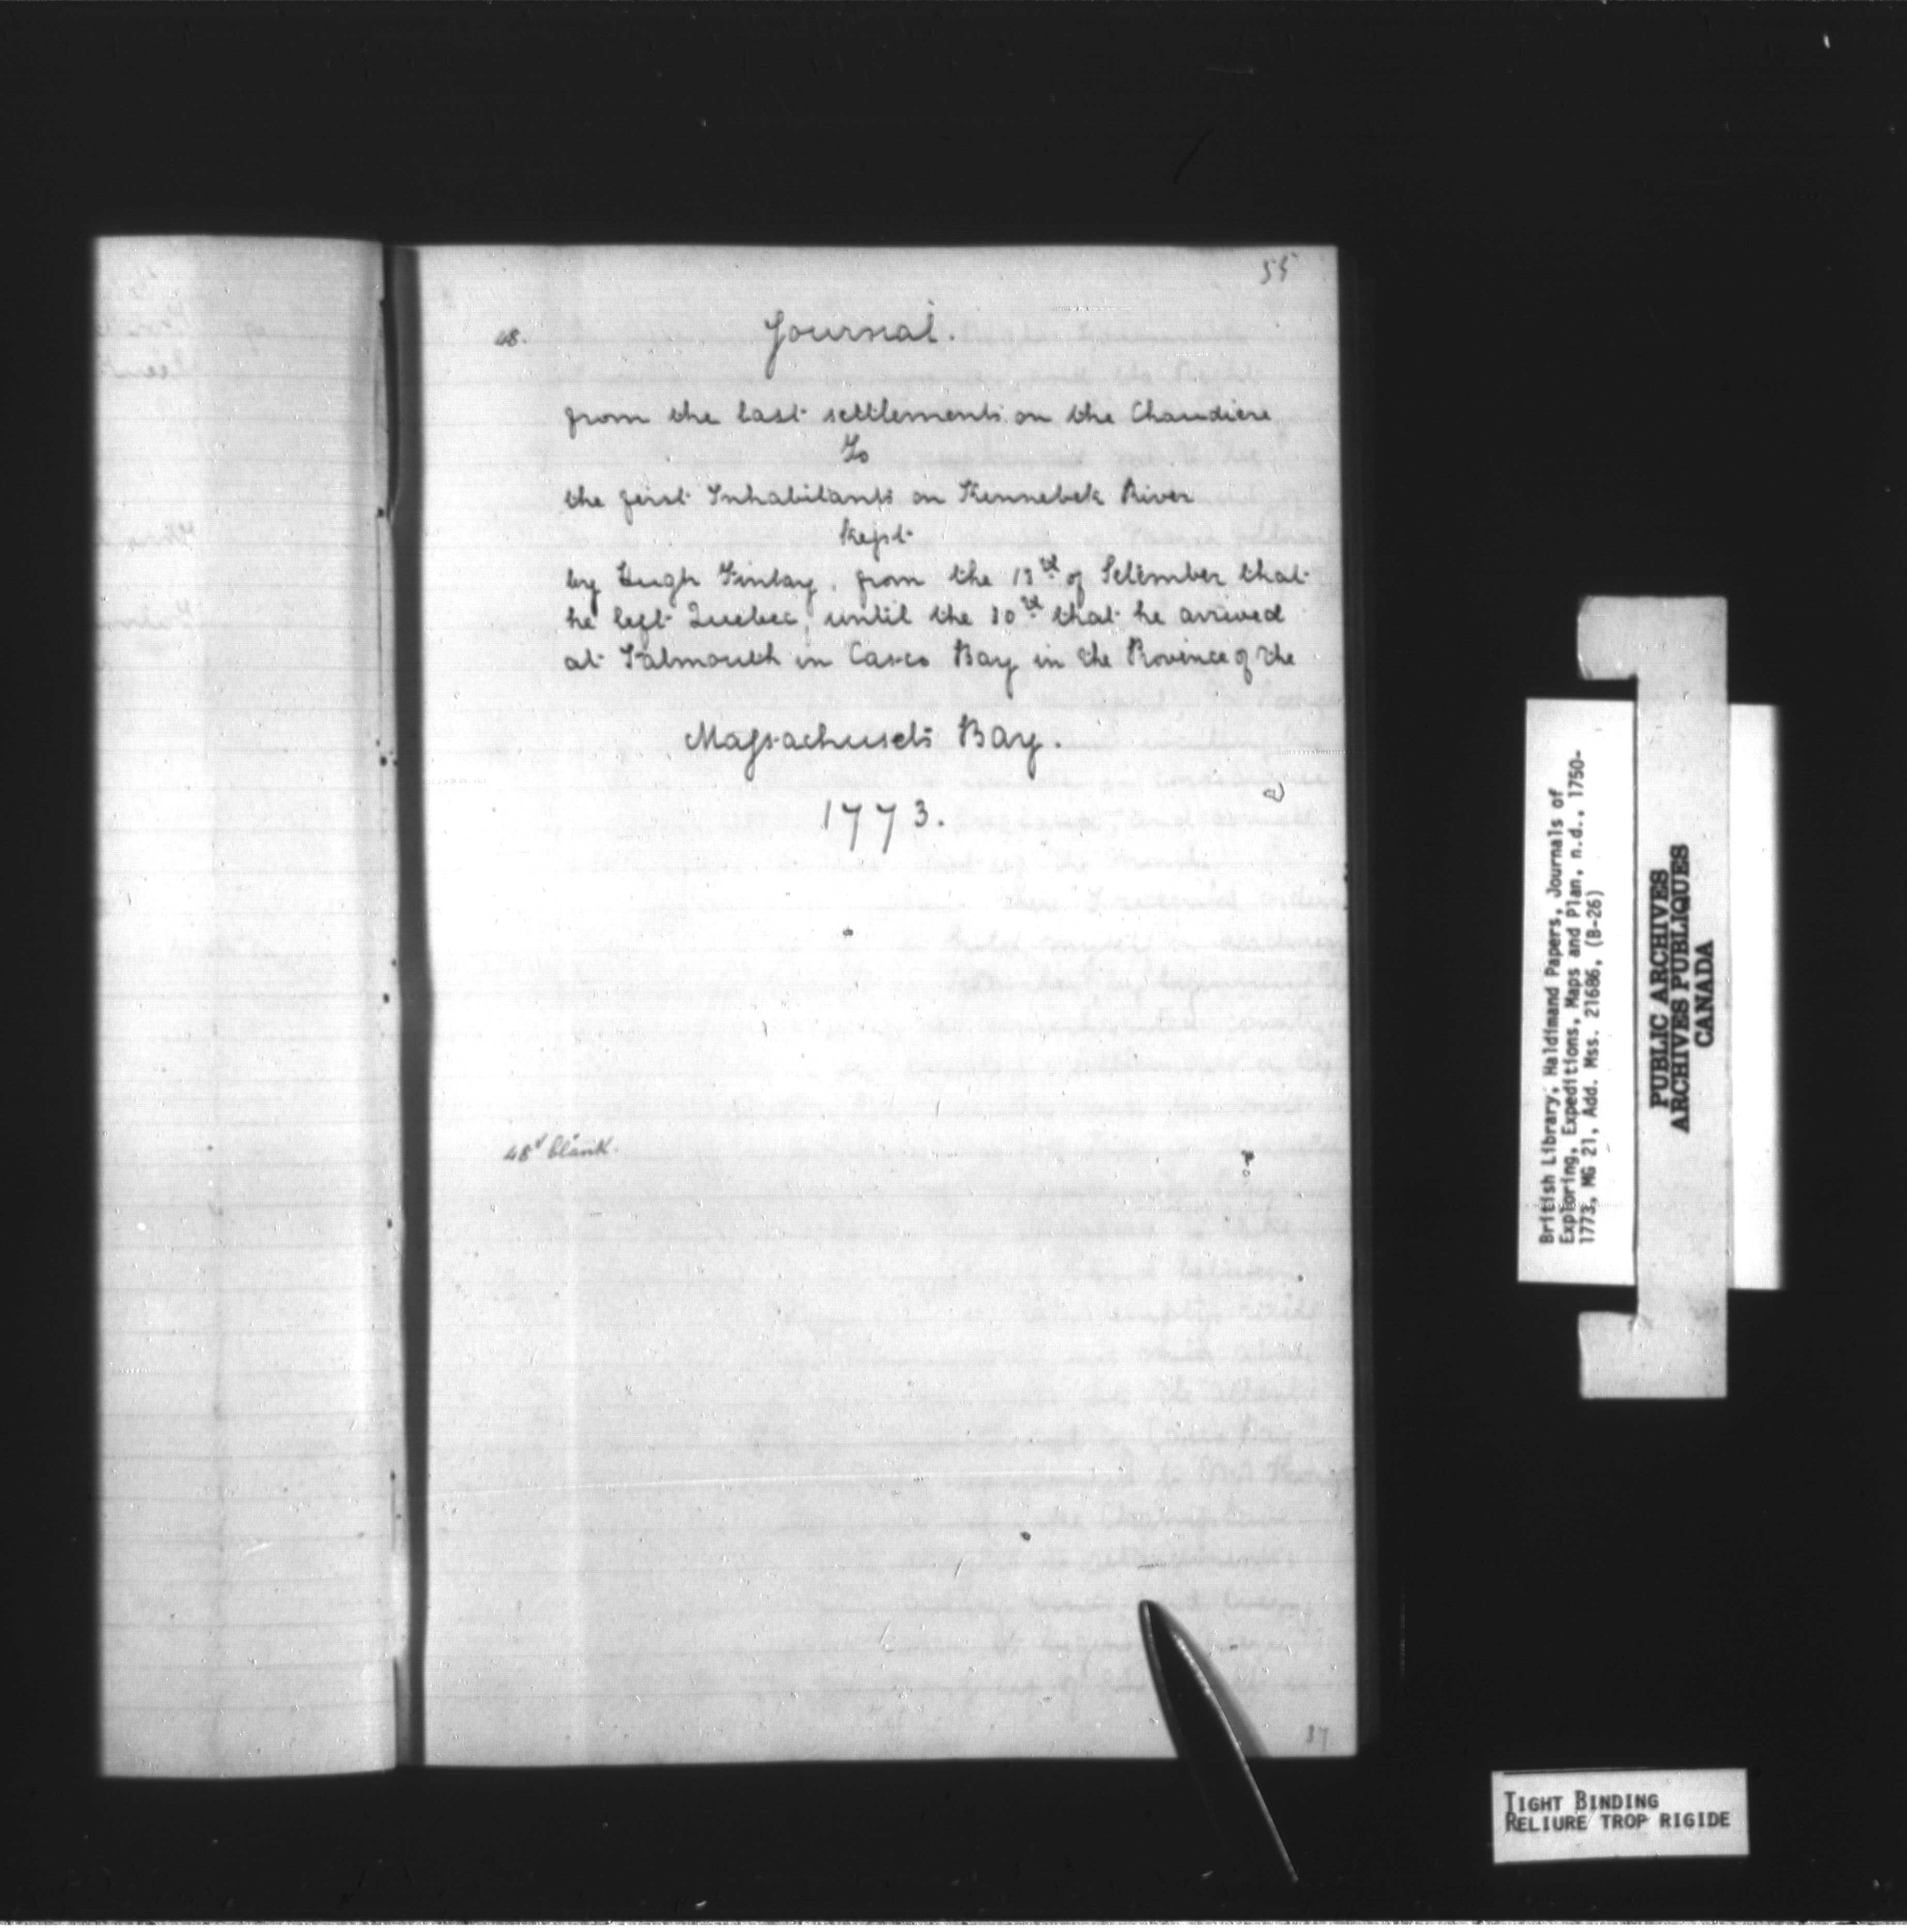 55
48.
Journal.
from the last settlements on the Chaudiere
To
the first Inhabitants on Kennebek River
Kept
by Hugh Finlay, from the 13th of Setember that
he left Quebec, until the 30th that he arrived
at Falmouth in Casco Bay in the Province of the
Massachusets Bay.
1773.
48v blank.
37
British Library, Haldimand Papers, Journals of
Exploring, Expeditions, Maps and Plan, n.d., 1750-
1773, MG 21, Add. Mss. 21686, (B-26)
PUBLIC ARCHIVES
ARCHIVES PUBLIQUES
CANADA
TIGHT BINDING
RELIURE TROP RIGIDE